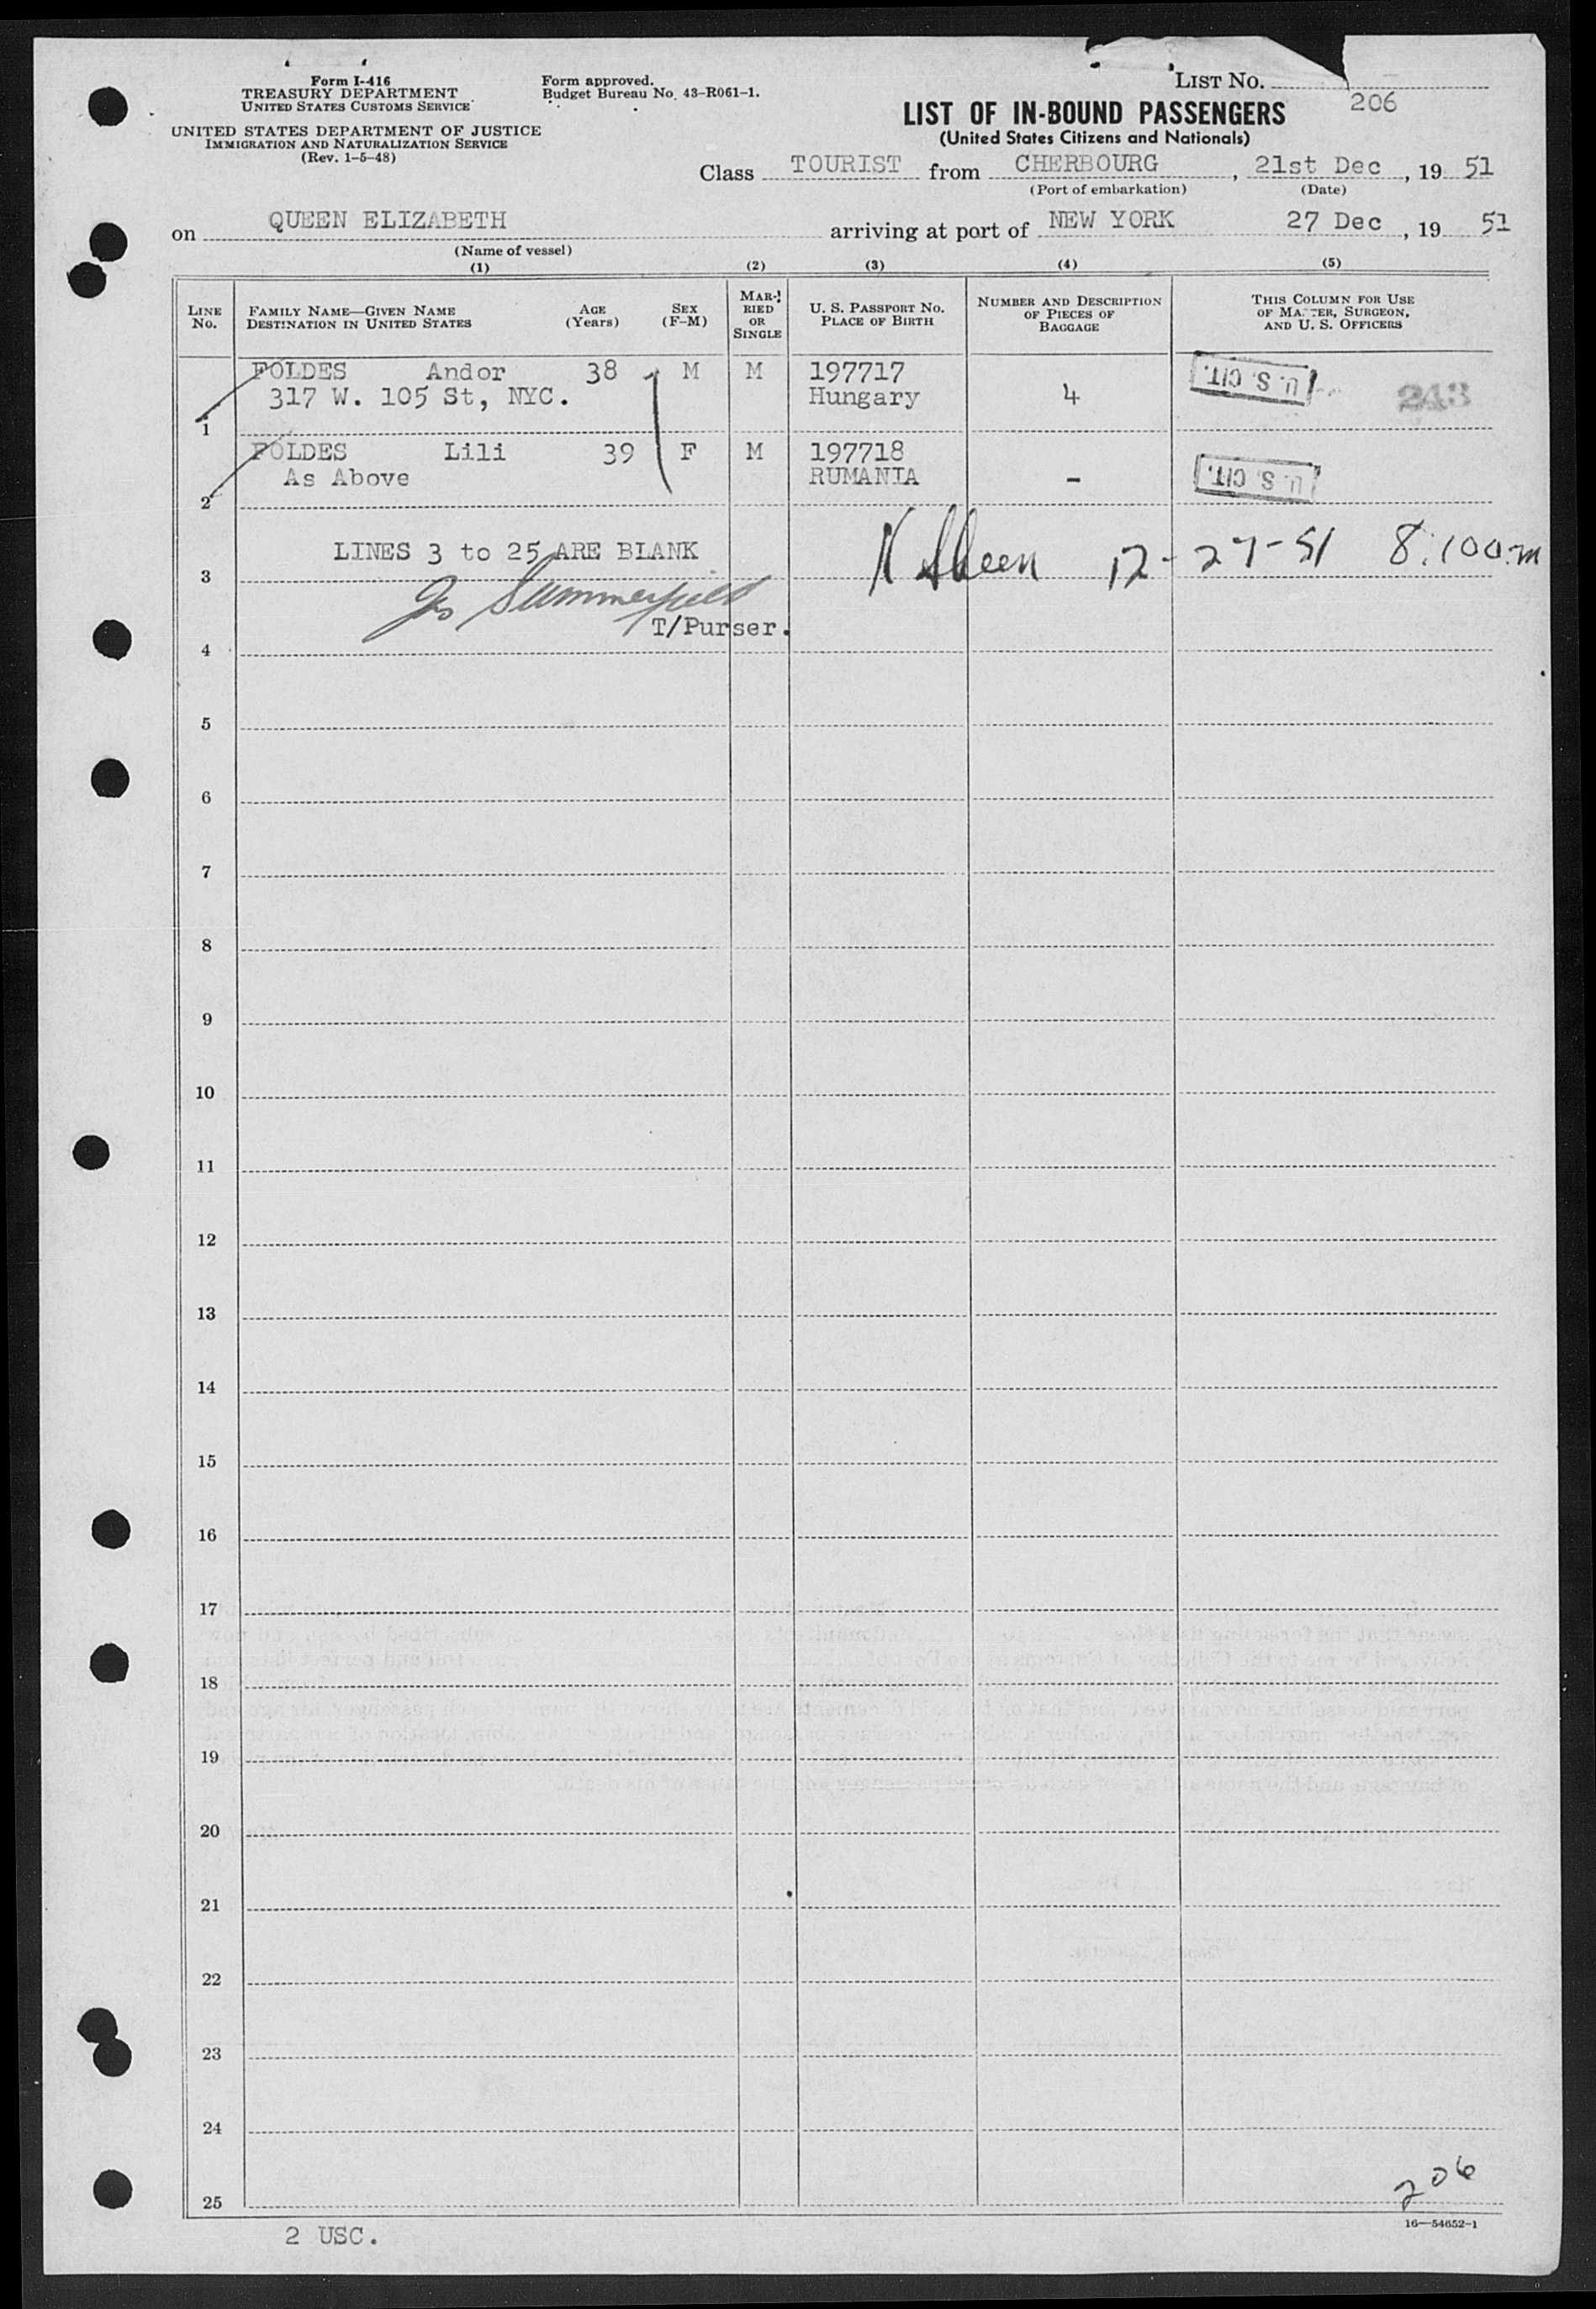 Form I-416
TREASURY DEPARTMENT
UNITED STATES CUSTOMS SERVICE
UNITED STATES DEPARTMENT OF JUSTICE
IMMIGRATION AND NATURALIZATION SERVICE
(Rev. 1-5-48)
Form approved.
Budget Bureau No. 43-R061-1.
LIST NO.
206
LIST OF IN-BOUND PASSENGERS
(United States Citizens and Nationals)
Class TOURIST from CHERBOURG, 21st Dec, 19 51
(Port of embarkation) (Date)
on QUEEN ELIZABETH arriving at port of NEW YORK 27 Dec, 19 51
(Name of vessel)
(1) (2) (3) (4) (5)
LINE NO.
FAMILY NAME—GIVEN NAME
DESTINATION IN UNITED STATES
AGE
(Years)
SEX
(F-M)
MAR-
RIED
OR
SINGLE
U. S. PASSPORT NO.
PLACE OF BIRTH
NUMBER AND DESCRIPTION
OF PIECES OF
BAGGAGE
THIS COLUMN FOR USE
OF MASTER, SURGEON,
AND U. S. OFFICERS
FOLDES Andor 38 M M 197717 U. S. CIT.
317 W. 105 St, NYC. Hungary 4 243
1
FOLDES Lili 39 F M 197718
As Above RUMANIA - U. S. CIT.
2
LINES 3 to 25 ARE BLANK 12-27-51 8:10 am
3
Summerfield
T/Purser.
4
5
6
7
8
9
10
11
12
13
14
15
16
17
18
19
20
21
22
23
24
206
25
16—54652-1
2 USC.